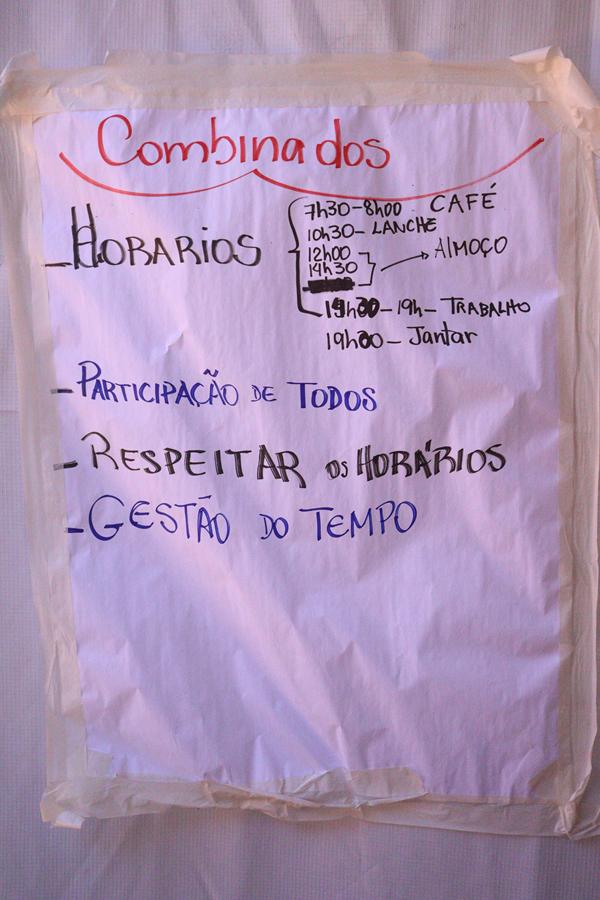 Combinados
- HORARIOS
7h30-8h00 CAFÉ
10h30- LANCHE
12h00
14h30 → AlMOÇO
-19h- TRABALHO
19h30- Jantar
- PARTICIPAÇÃO DE TODOS
- RESPEITAR OS HORÁRIOS
- GESTÃO DO TEMPO